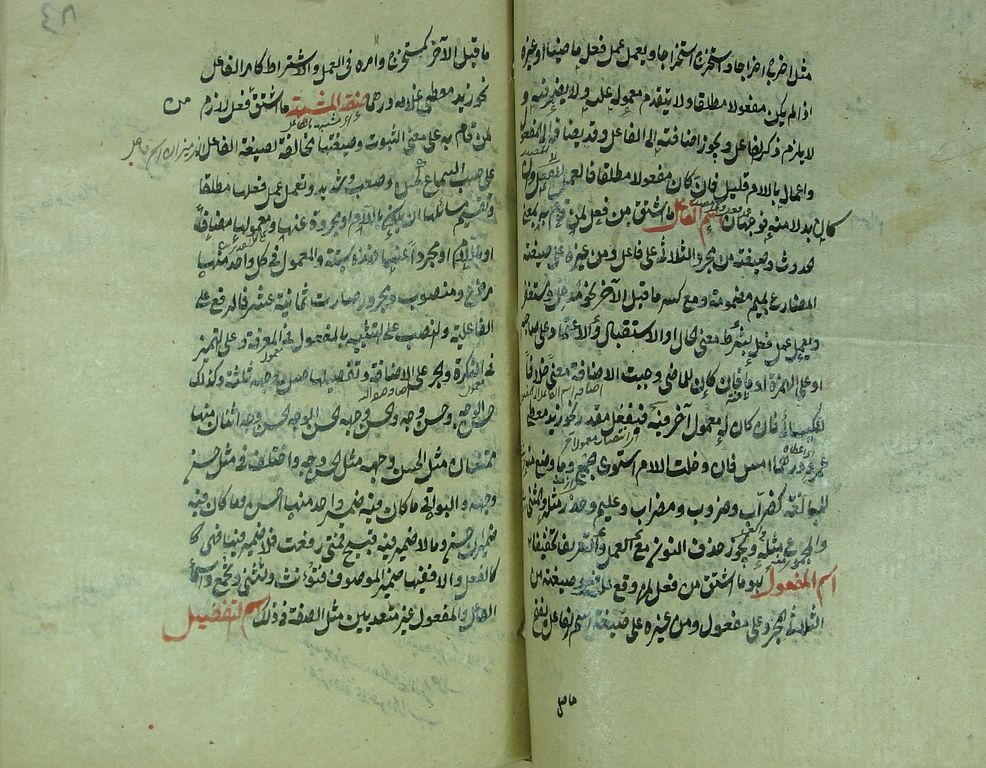 مثل اخرج اخراجا واستخرج استخراجا ويعمل عمل فعله ماضيا او غيره
اذا لم يكن مفعولا مطلقا ولا يتقدم معموله عليه ولا يضمر فيه و
لا يلزم ذكر الفاعل ويجوز اضافته الى الفاعل وقد يضاف الى المفعول
واعماله باللام قليل فان كان مفعولا مطلقا فالعمل للفعل وان
كان بدلا منه فوجهان اسم الفاعل ما اشتق من فعل لمن قام به بمعنى
الحدوث وصيغته من مجرد الثلاثي على فاعل ومن غيره على صيغة
المضارع بميم مضمومة ومع كسر ما قبل الآخر نحو مدخل ومستغفر
ويعمل عمل فعله بشرط معنى الحال او الاستقبال والاعتماد على صاحبه
او على الهمزة او ما فان كان للماضي وجبت الاضافة معنى خلافا
للكسائي فان كان له معمول آخر فبفعل مقدر نحو زيد معطى
عمرو درهما امس فان دخلت اللام استوى الجميع وما وضع منه
للمبالغة كضراب وضروب ومضراب وعليم وحذر مثله والمثنى
والمجموع مثله ويجوز حذف النون مع العمل والتعريف تخفيفا
اسم المفعول هو ما اشتق من فعل لمن وقع عليه وصيغته من
الثلاثى المجرد على مفعول ومن غيره على صيغة اسم الفاعل بفتح
ما قبل
ما قبل الآخر كمستخرج وامره في العمل والاشتراط كامر الفاعل
نحو زيد معطى غلامه درهما صفة المشبهة ما اشتق من فعل لازم
لمن قام به على معنى الثبوت وصيغتها مخالفة لصيغة الفاعل
على حسب السماع كحسن وصعب وشديد وتعمل عمل فعلها مطلقا
وتقسيم مسائلها ان يكون باللام او مجردة عنها ومعمولها مضافا
او باللام او مجردا عنها فهذه ستة والمعمول في كل واحد منها
مرفوع ومنصوب ومجرور صارت ثمانية عشر فالرفع على
الفاعلية والنصب على التشبيه بالمفعول في المعرفة وعلى التميز
في النكرة والجر على الاضافة وتفصيلها حسن وجهه ثلثة وكذلك
حسن الوجه وحسن وجه الحسن وجهه الحسن الوجه الحسن وجه اثنان منها
ممتنعان مثل الحسن وجهه مثل الحسن وجه واختلف في مثل حسن
وجهه والبواقي ما كان فيه ضمير واحد منها احسن وما كان فيه
ضميران حسن وما لا ضمير فيه قبيح فمتى رفعت فلا ضمير فيها فهي
كالفعل والا ففيها ضمير الموصوف فتؤنث وتثنى وتجمع واسما
الفاعل والمفعول غير متعديين مثل الصفة في ذلك اسم التفضيل